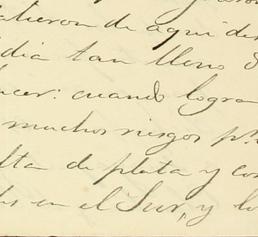 salieron de aquí des
dia tan lleno d
ncer: cuando logra
muchos riesgos pr.
lta de plata y con
en el Sur, y lo